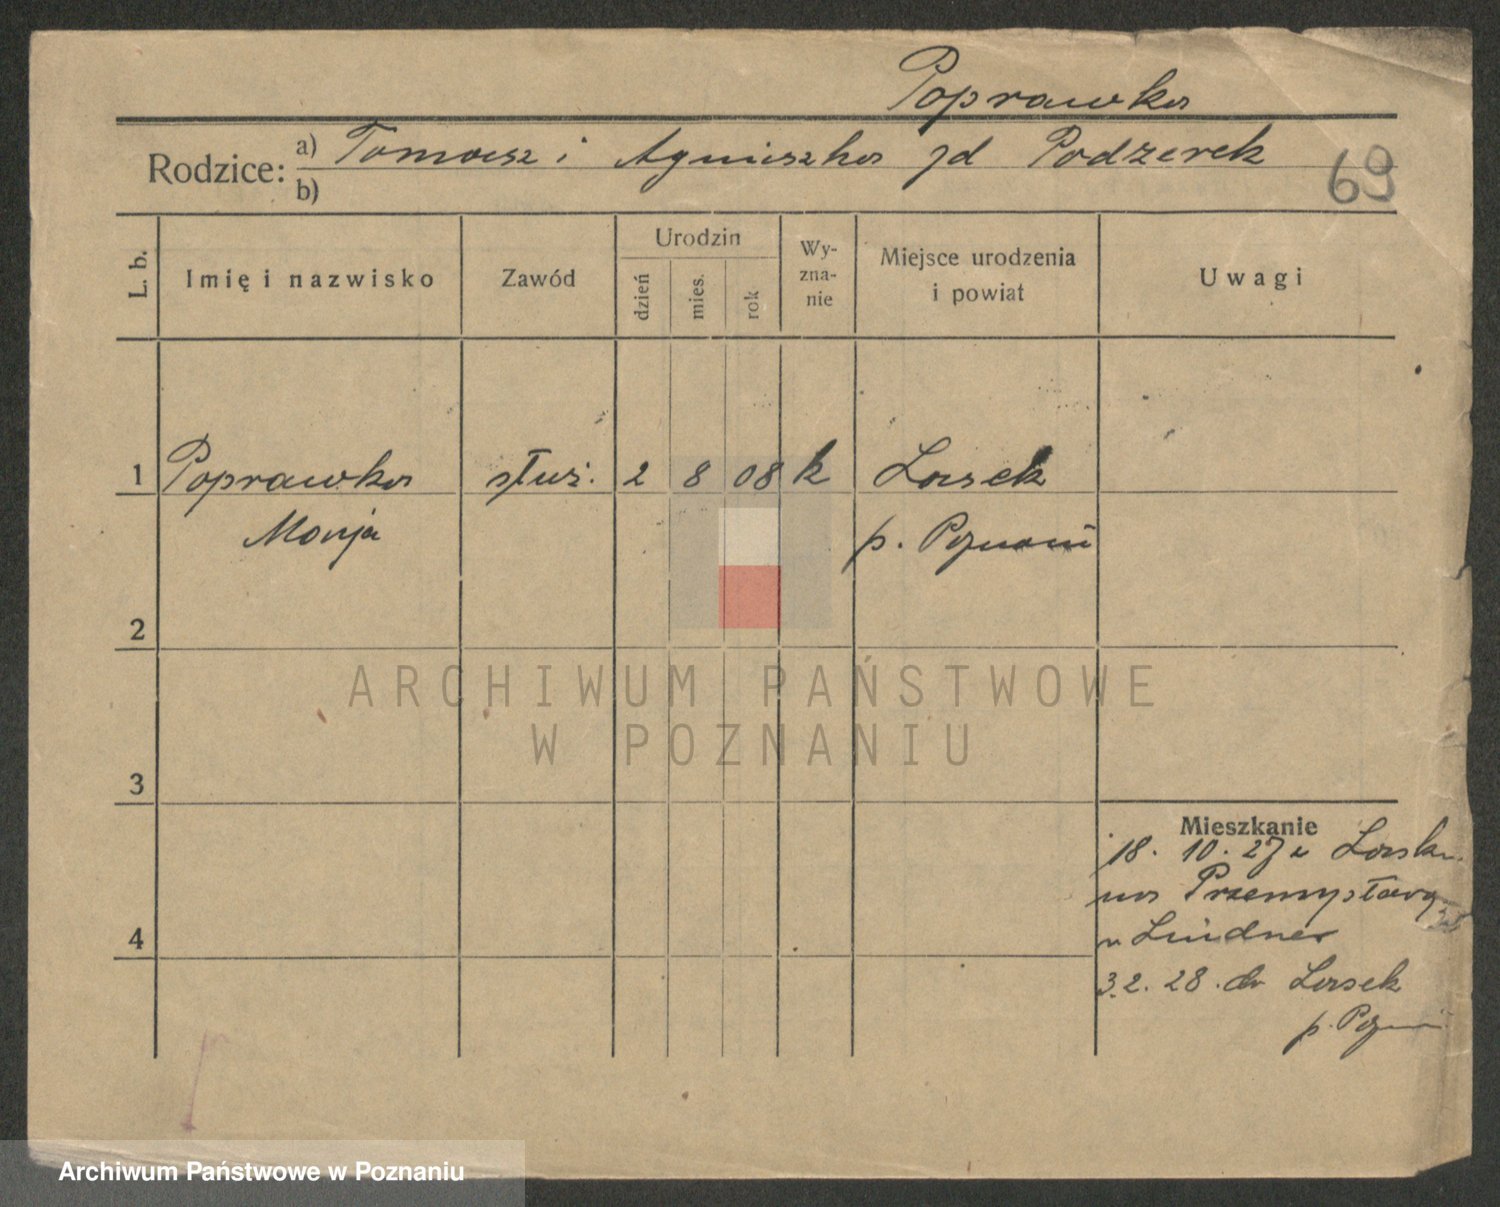 Poprawka
Rodzice: a) Tomasz i Agnieszka zd Podzerek
b)
69
L. b.
Imię i nazwisko
Zawód
Urodzin
dzień
mies.
rok
Wy-
zna-
nie
Miejsce urodzenia
i powiat
Uwagi
1 Poprawka służ. 2 8 08 k Lasek
Marja p. Poznań
2
ARCHIWUM PAŃSTWOWE
W POZNANIU
3
Mieszkanie
18. 10. 27 z Lasku
na Przemysłową
u Lindner
4
3.2.28. do Lasek
p. Pozn
Archiwum Państwowe w Poznaniu